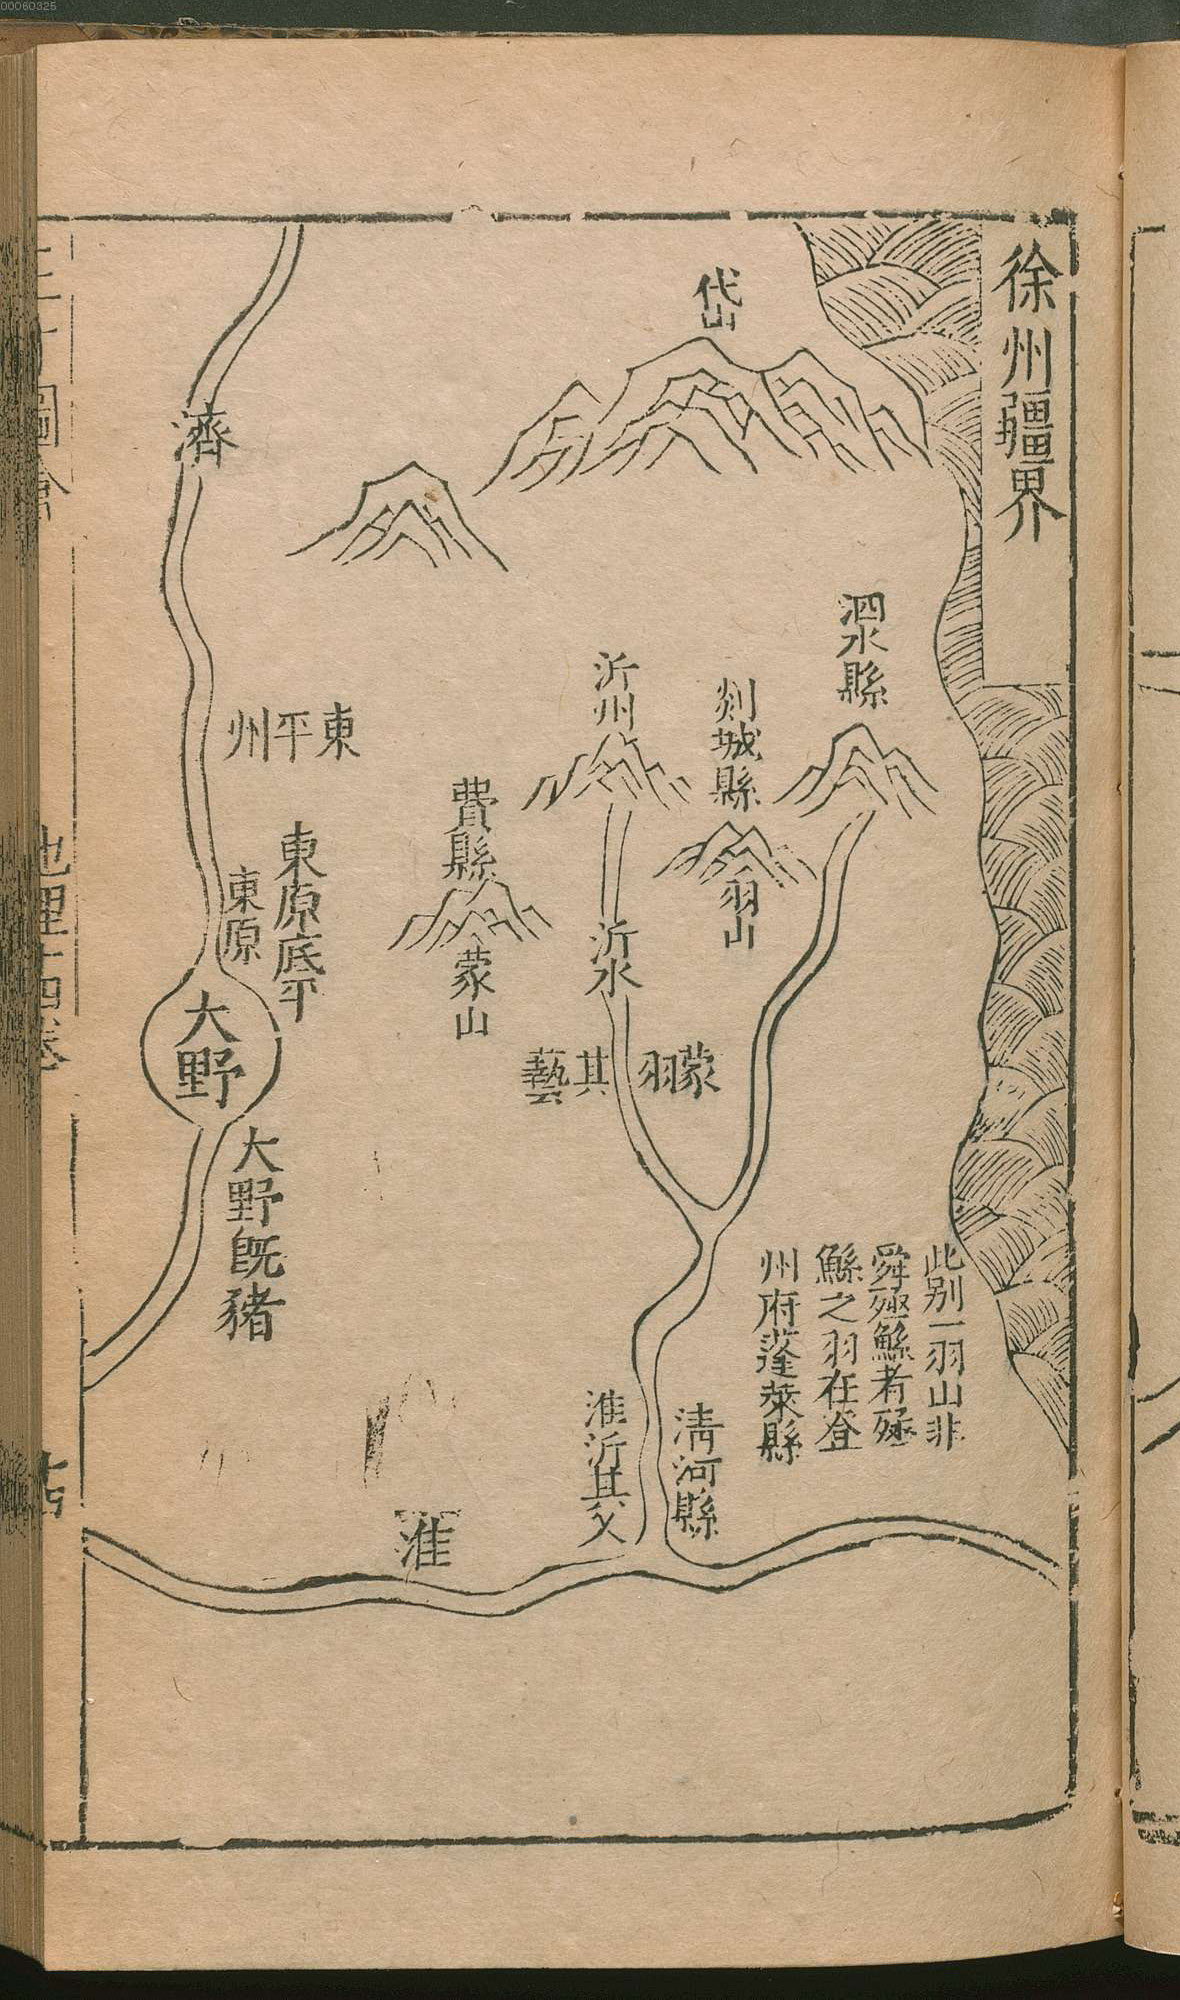 00060325
徐州疆界
岱山
泗水縣
剡城縣
羽山
沂州
沂水
費縣
蒙山
蒙羽
其藝
濟
東平州
東原底平
東原
大野
大野既豬
此别一羽山非
舜殛鯀者殛
鯀之羽在登
州府蓬萊縣
清河縣
淮沂其乂
淮
圖會
地理十四卷